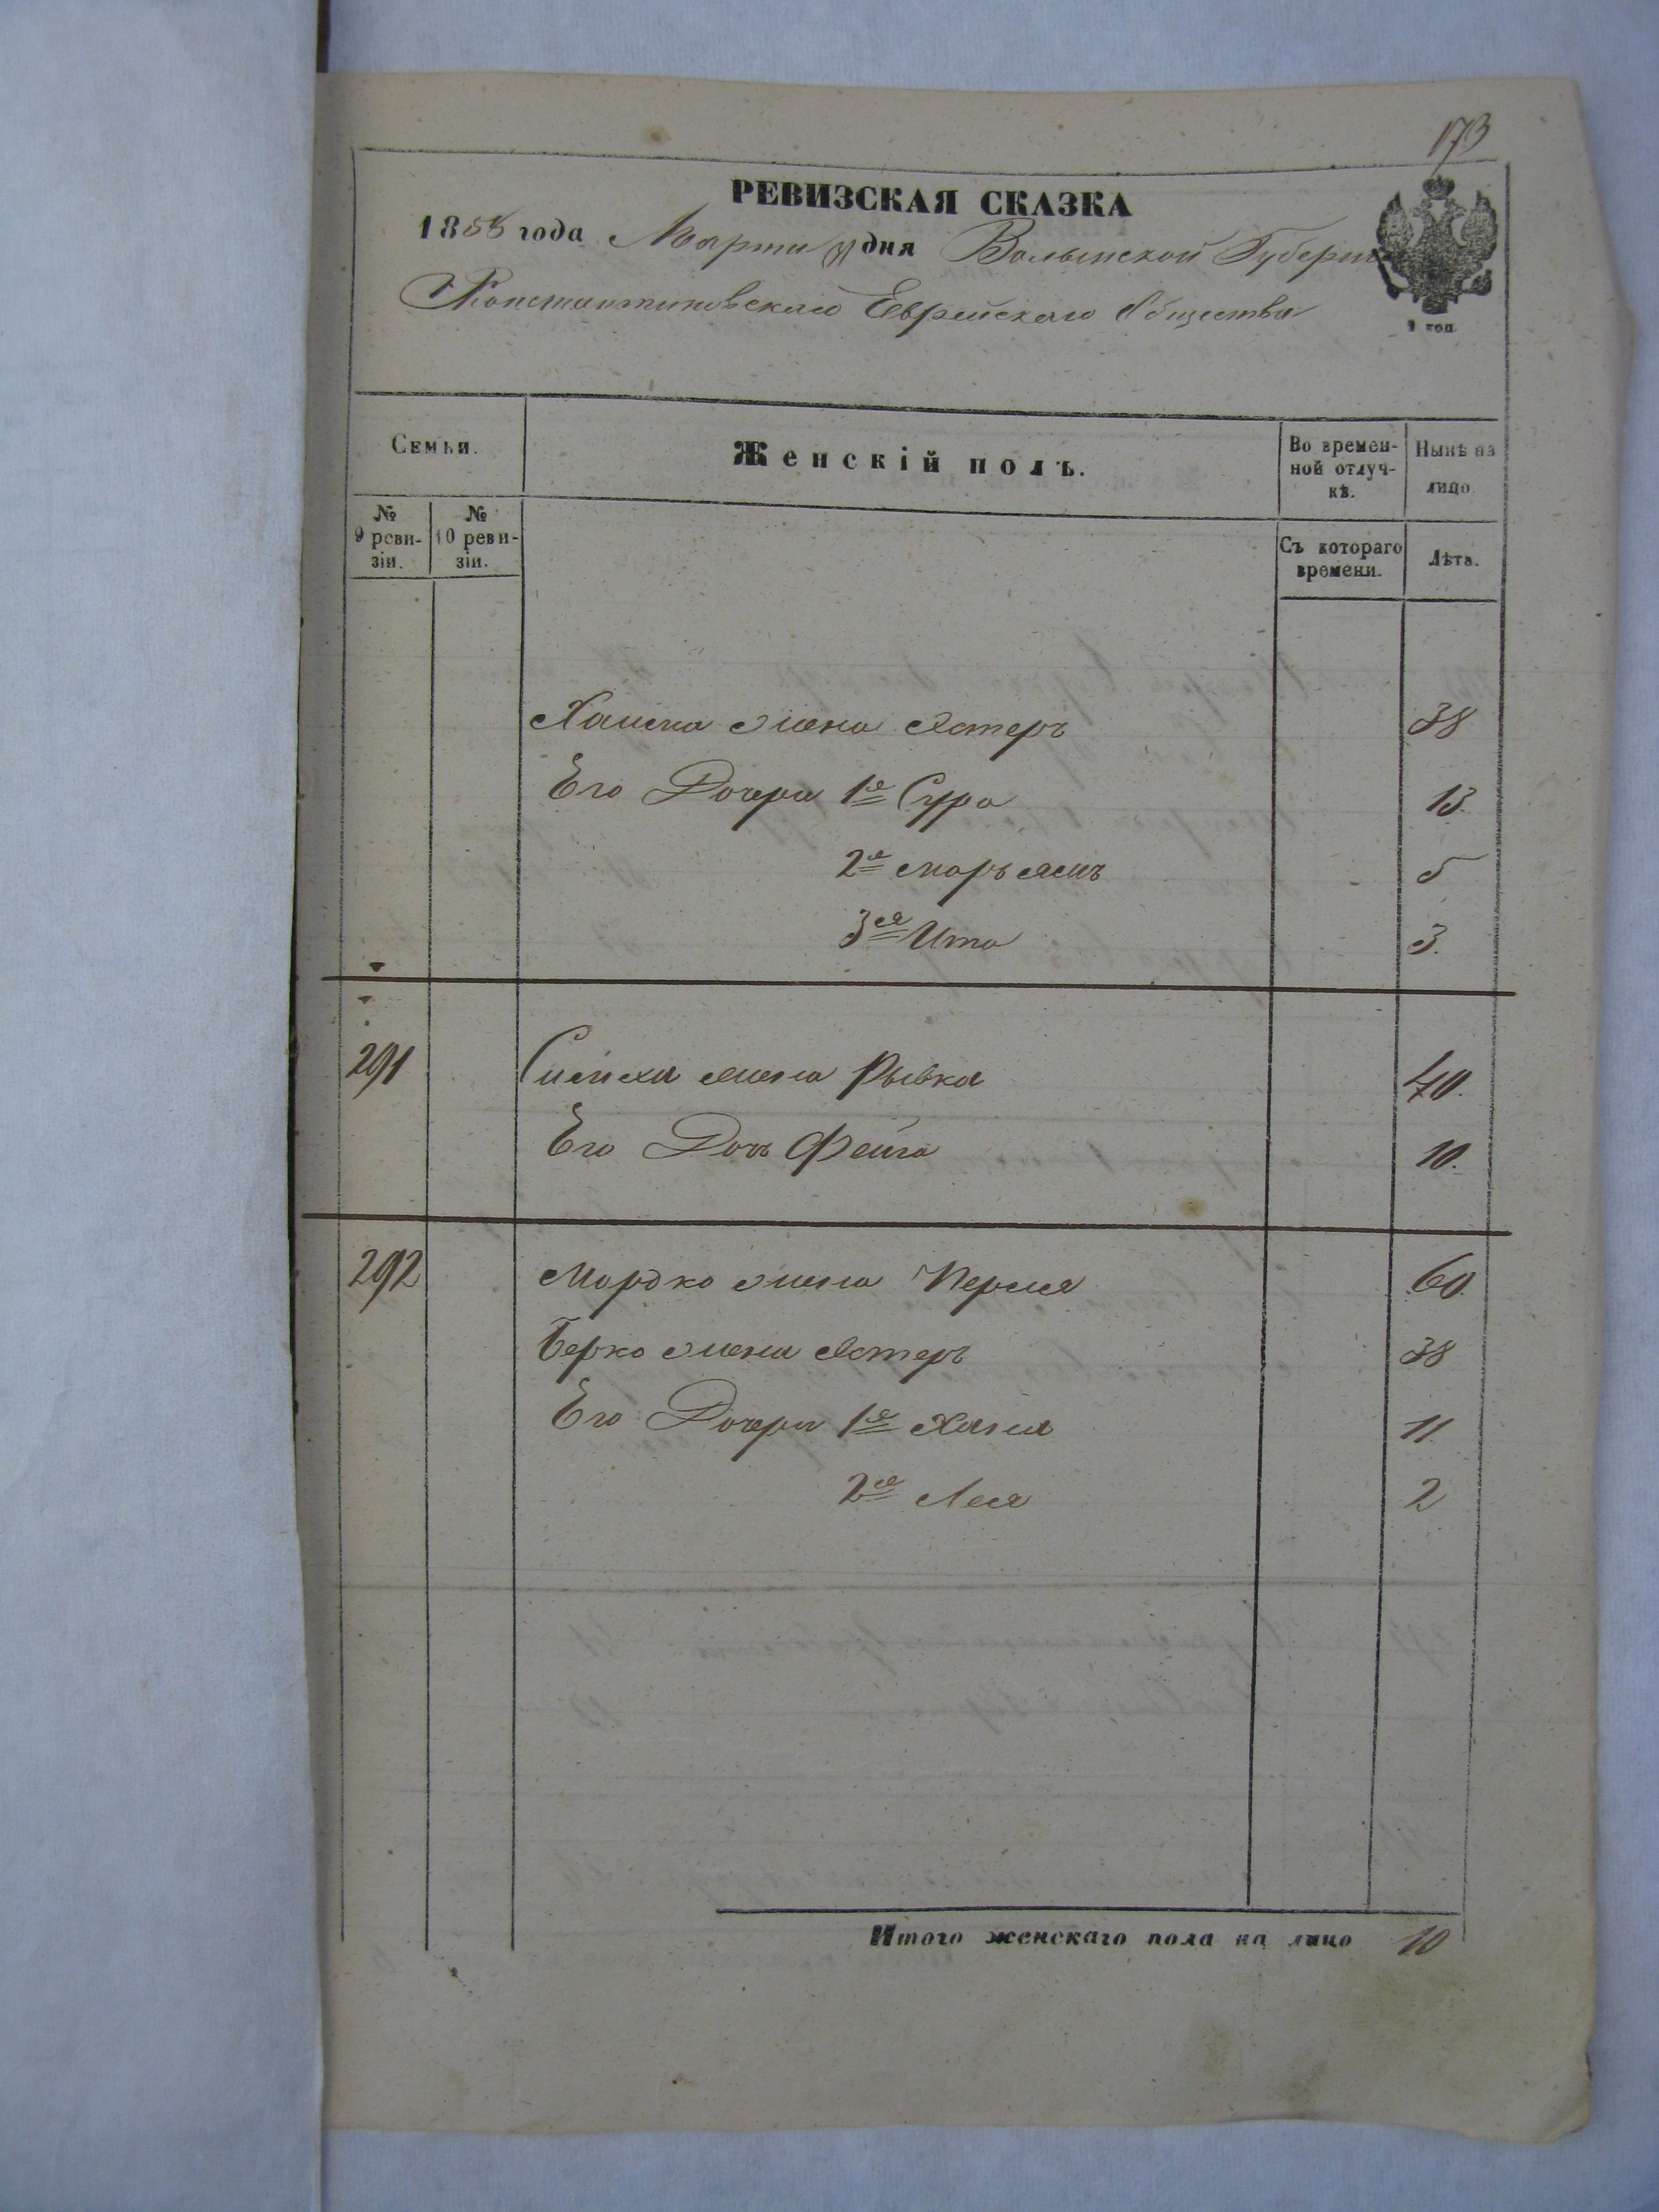 173
РЕВИЗСКАЯ СКАЗКА
1858 года Марта дня Волынской Губерніи
Константиновскаго Еврейскаго Общества
1 коп.
Семьи.
Женскій полъ.
Во времен-
ной отлуч-
кѣ.
Нынѣ на
лицо
№
9 реви-
зіи.
№
10 реви-
зіи.
Съ котораго
времени.
Лѣта.
жена Эстеръ 38
Его Дочери 1я Сура 13.
2я Марьямъ 5
3я Ита 3.
291 Симха жена Рывка 40.
Его Дочь Фейга 10.
292 Мордко жена Перля 60.
Берко жена Эстеръ 38
Его Дочери 1я Хана 11
2я Лея 2
Итого женскаго пола на лицо 10